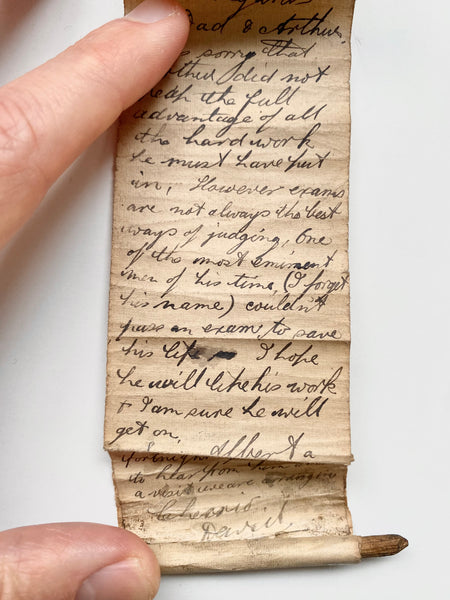 Dad & Arthur,
sorry that
did not
reap the full
advantage of all
the hard work
he must have put
in, However exams
are not always the best
ways of judging, One
of the most eminent
men of his time, (I forget
his name) couldn't
pass an exam to save
his life I hope
he will like his work
& I am sure he will
get on,
fortnight Albert a
to hear from
a visit we are arranging